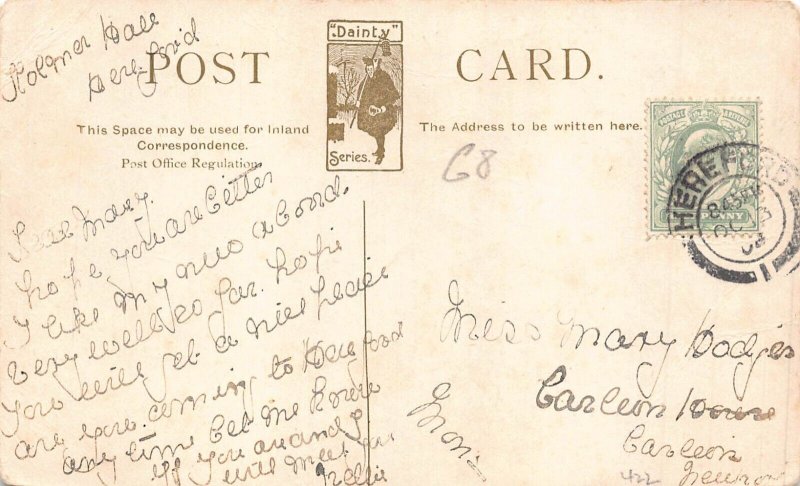 Holmer Hall
Hereford
POST CARD.
"Dainty"
Series.
This Space may be used for Inland
Correspondence.
Post Office Regulation
The Address to be written here.
68
POSTAGE
PENNY
HEREFORD
8.45 PM
OC 3
1
Dear Mary.
hope you are better
I like my new abord.
very well so far. hope
you will get a nice place
are you coming to Hereford
any time let me know
if you are and I
will meet you
Nellie
Miss Mary Hodges
Carleon House
Carleon
Newport
Mon
422